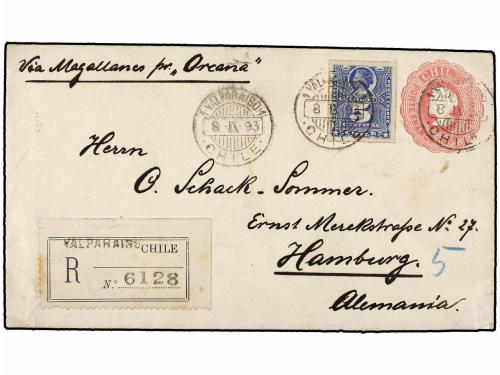 Via Magallanes pr. „Orcana"
VALPARAISO
8 IX 93
CHILE
VALPARAISO
8 IX
CHILE
5
CHILE
8
CHILE
Herrn
O. Schack-Sommer.
Ernst Merckstraße No. 27.
Hamburg.
5
Alemania.
VALPARAISO CHILE
R
No. 6128